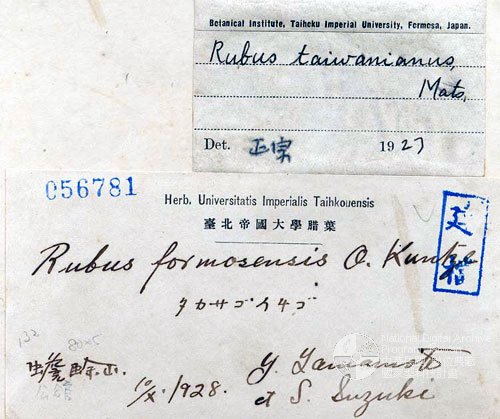 Botanical Institute, Taihoku Imperial University, Formosa, Japan.
Rubus taiwanianus,
Mats.
Det. 正宗 1927
056781
Herb. Universitatis Imperialis Taihkouensis
臺北帝國大學腊葉
Rubus formosensis O. Kuntze
タカサゴイチゴ
10/X. 1928.
Y. Yamamoto
et S. Suzuki
National Digital Archives